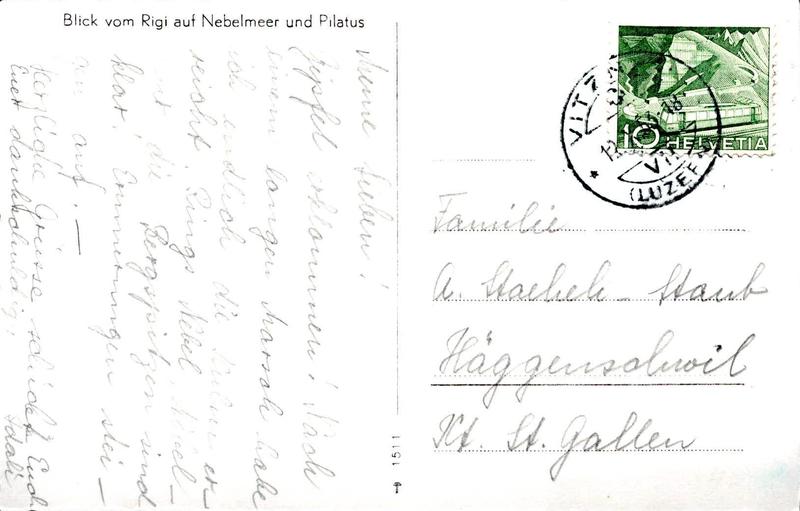 Blick vom Rigi auf Nebelmeer und Pilatus
Meine Lieben!
Gipfel erklommen! Nach
einem langen Marsch habe
ich endlich die Kulm er-
reicht. Rings Nebel, Nebel –
nur die Bergspitzen sind
klar! Erinnerungen stei –
gen auf. –
Herzliche Grüsse sendet Euch
Euer dankschuldig,
VITZNAU
(LUZERN)
10 HELVETIA
Familie
A. Staehele – Staub
Häggenschwil
Kt. St. Gallen
1151